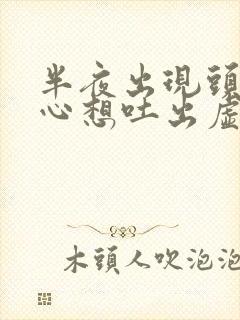 半夜出現頭
心想吐出虛
木頭人吹泡泡